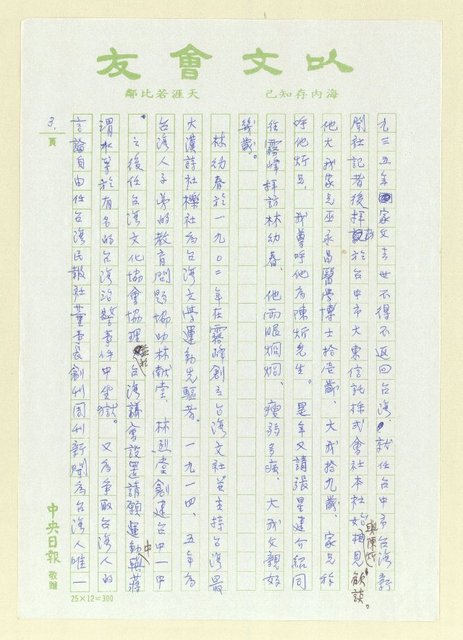 友會文以
鄰比若涯天　己知存內海
九三五年家父去世不得不返回台灣，就任台中市台灣新
聞社記者後於台中市大東信託株式會社本社始相見歡談。
與陳炘
他大我家兄巫永昌醫學博士拾壹歲、大我拾九歲、家兄稱
呼他炘兄，我尊呼他為陳炘先生。是年又請張星建介紹同
往霧峰拜訪林幼春、他兩眼烱烱、瘦弱多病、大我父親好
幾歲。
林幼春於一九〇二年在霧峰創立台灣文社並支持台灣最
大漢詩社櫟社為台灣文學運動先驅者。一九一四、五年為
台灣人子弟的教育問題協助林獻堂、林烈堂創建台中一中
。之後任台灣文化協會協理、台灣議會設置請願運動與蔣
渭水等於有名的台灣治警事件中坐獄。又為爭取台灣人的
言論自由任台灣民報社董事長創刊周刊新聞為台灣人唯一
3.頁
中央日報敬贈
25×12=300